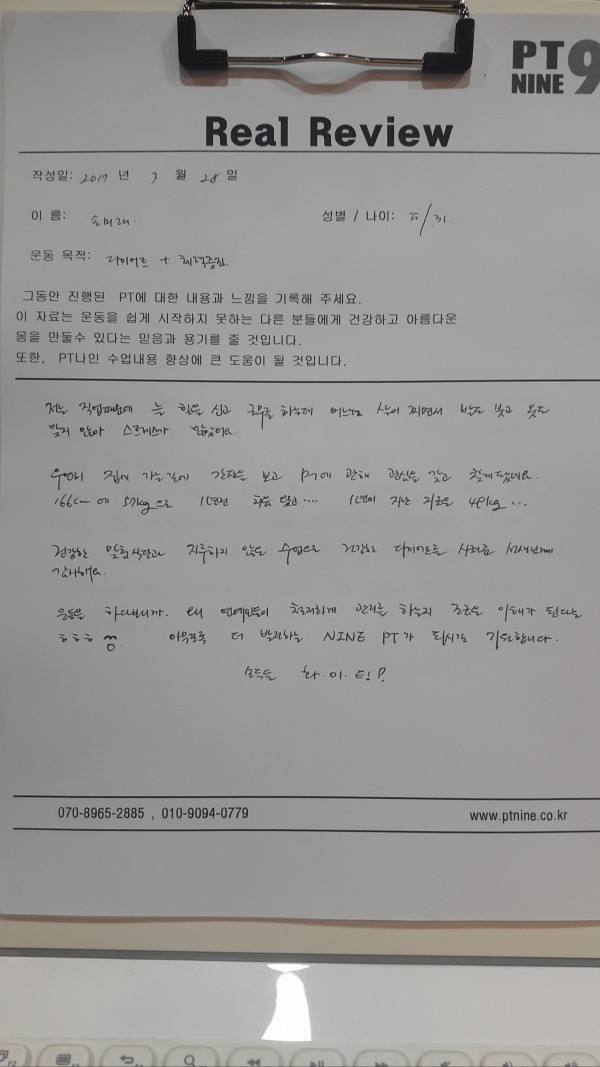 PT 9
NINE
Real Review
작성일: 2017 년 3 월 28 일
이 름: 송미래. 성별 / 나이: F/31.
운동 목적: 다이어트 + 체력증진.
그동안 진행된 PT에 대한 내용과 느낌을 기록해 주세요.
이 자료는 운동을 쉽게 시작하지 못하는 다른 분들에게 건강하고 아름다운
몸을 만들수 있다는 믿음과 용기를 줄 것입니다.
또한, PT나인 수업내용 향상에 큰 도움이 될 것입니다.
저는 직업때문에 늘 힐을 신고 근무를 하는데 어느날 살이 찌면서 발도 붓고 옷도
맞지 않아 스트레스가 많았어요.
우연히 집에 가는길에 간판을 보고 PT에 관해 관심을 갖고 찾게됐네요.
166cm 에 57kg으로 1년전 처음 왔고.... 1년이 지난 지금은 49kg ...
건강한 맞춤식단과 지루하지 않은 수업으로 건강한 다이어트를 시켜준 선생님께
감사해요.
운동을 하다보니까. 왜 연예인들이 철저하게 관리를 하는지 조금은 이해가 된다는
ㅎㅎㅎ 아무쪼록 더 발전하는 NINE PT가 되시길 기도합니다.
모두들 화.이.팅!
070-8965-2885 , 010-9094-0779 www.ptnine.co.kr